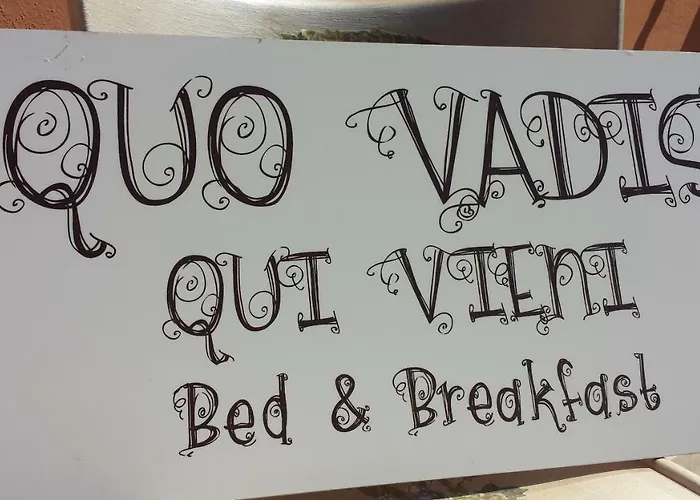 QUO VADIS
QUI VIENI
Bed & Breakfast